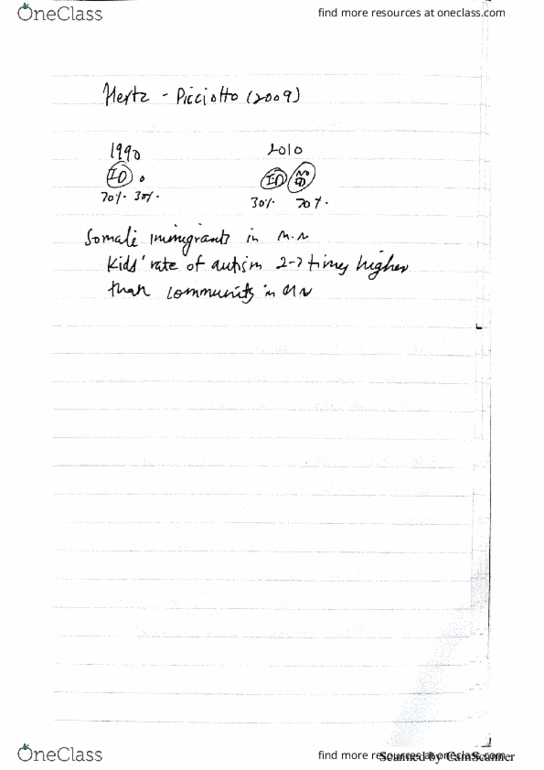 OneClass
find more resources at oneclass.com
Hertz - Picciotto (2009)
1990 2010
ID ID
70% 30% 30% 70%
Somali immigrants in M.N
Kids' rate of autism 2-7 times higher
than community in MN
OneClass
find more resources at oneclass.com
Scanned by CamScanner